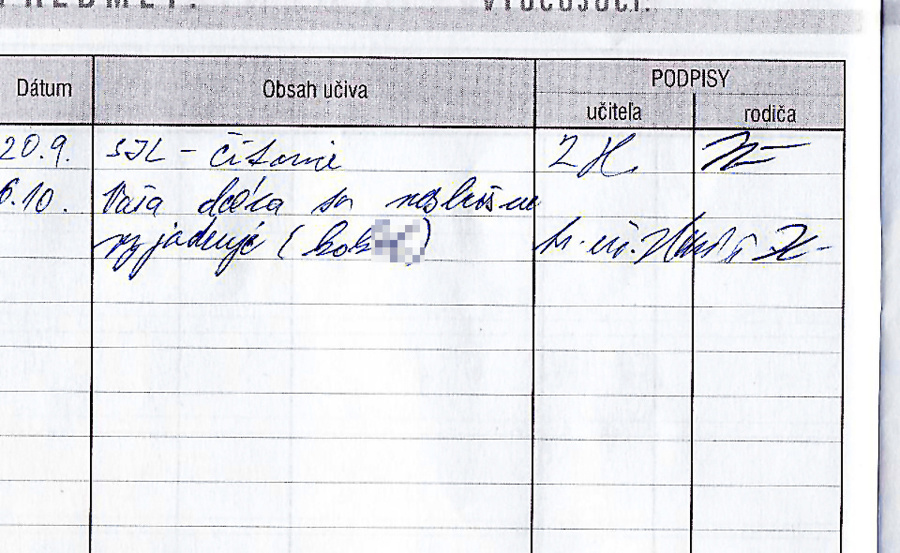 PREDMET: VYUČUJÚCI:
Dátum Obsah učiva PODPISY
učiteľa rodiča
20.9. SJL - čítanie
6.10. Vaša dcéra sa neslušne
vyjadruje ( tr. uč.